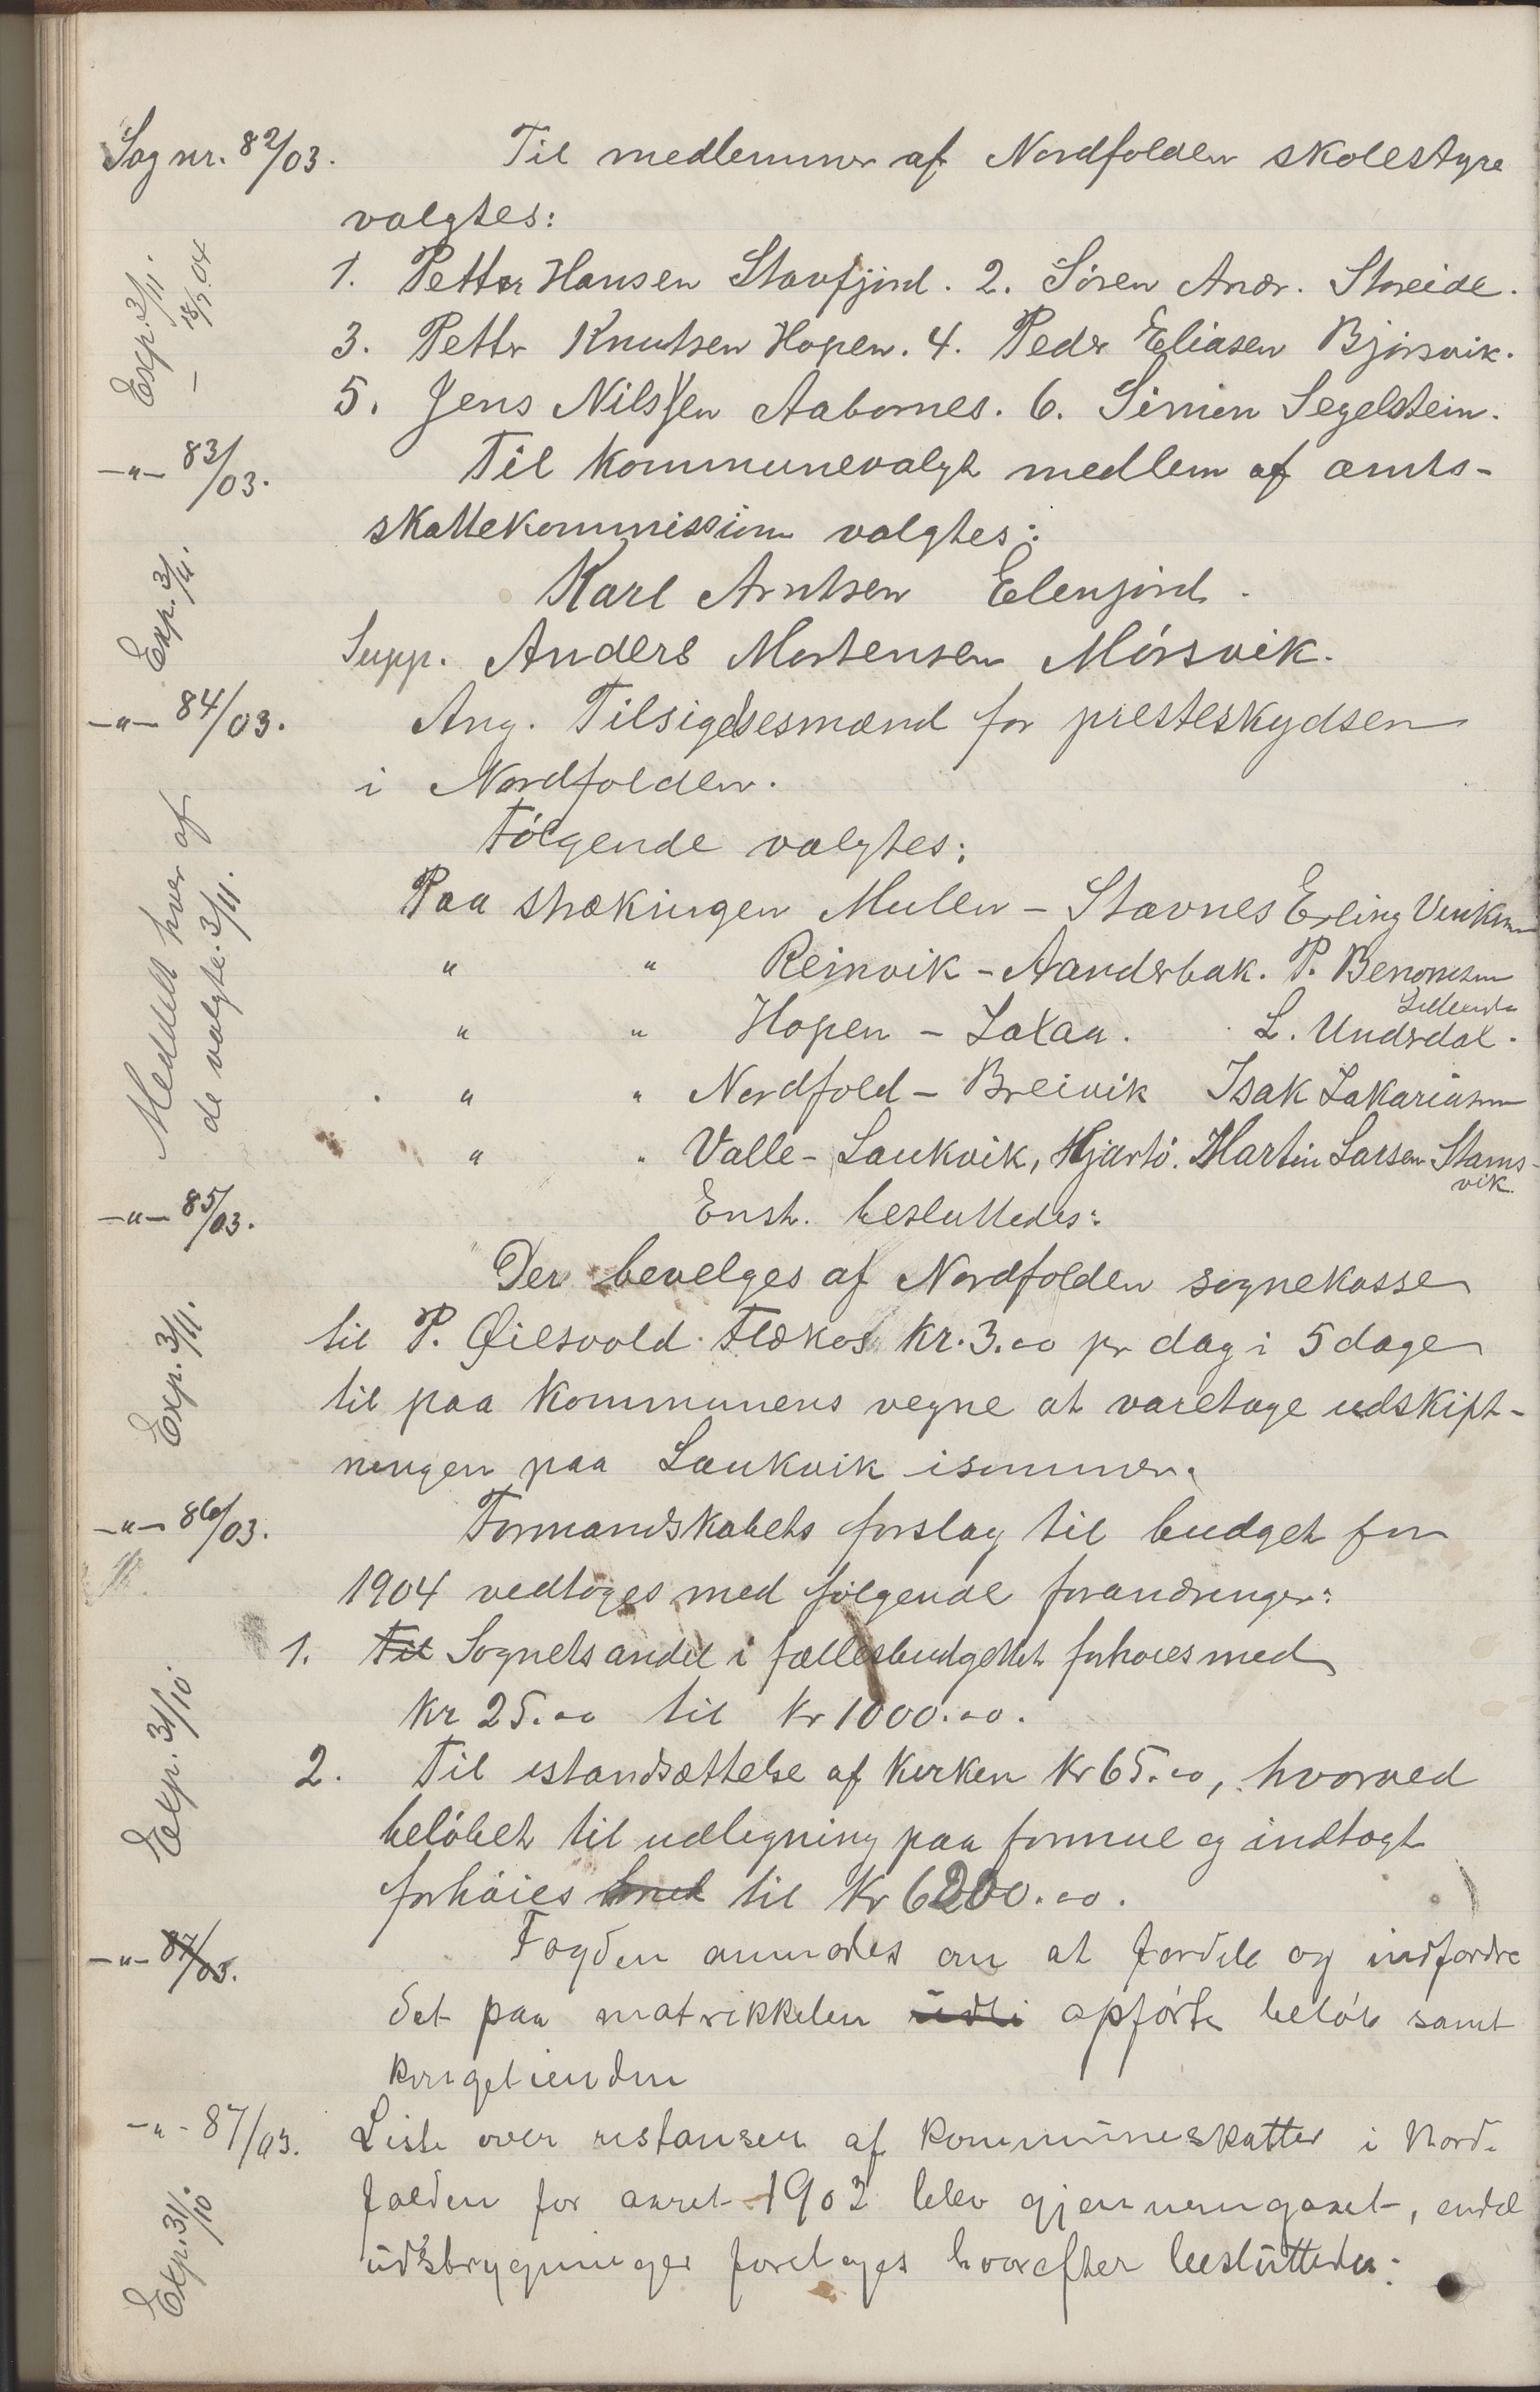 Sag nr. 82/03. Til medlemmer af Nordfolden skolestyre
valgtes:
Exp. 3/11.
– 18/7.04
1. Petter Hansen Stavfjord. 2. Sören Andr. Storeide.
3. Petter Knutsen Hopen. 4. Peder Eliasen Bjørsvik.
5. Jens Nilssen Aabornes. 6. Simon Segelstein.
–"– 83/03. Til kommunevalgt medlem af amts-
skattekommission valgtes:
Exp. 3/11.
Karl Arntsen Elenjord.
Supp. Anders Mortensen Mörsvik.
–"– 84/03. Ang. Tilsigelsesmænd for presteskydsen
i Nordfolden.
Meddelt hver af
de valgte. 3/11.
Følgende valgtes:
Paa strækningen Mulen – Stavnes Erling
" " Reinvik – Aanderbak. P. Benonisen
" " Hopen – Laxaa. L. Undrdal.
" " Nordfold – Breivik Isak Zakariasen
" " Valle – Laukvik, Hjartö. Martin Larsen Stams-
vik.
–"– 85/03. Enst. besluttedes:
Der bevelges af Nordfolden sognekasse
Exp. 3/11.
til P. Øilsvold Flækos kr. 3.00 pr dag i 5 dage
til paa kommunens vegne at varetage udskift-
ningen paa Laukvik isommer.
–"– 86/03. Formandskabets forslag til budget for
1904 vedtoges med følgende forandringer:
Exp. 31/10.
1. Til Sognets andel i fællesbudgettet forhøies med
kr 25.00 til kr 1000.00.
2. Til istandsættelse af kirken kr 65.00, hvorved
beløbet til udligning paa formue og indtægt
forhöies med til kr 6200.00.
–"– 87/03. Fogden anmodes om at fordele og indfordre
det paa matrikkelen udli opförte belöb samt
kongetienden
–"– 87/03. Liste over restanser af kommuneskatter i Nord-
folden for aaret 1902 blev gjennemgaaet, endel
Exp. 31/10
udstrygninger foretages hvorefter besluttedes: